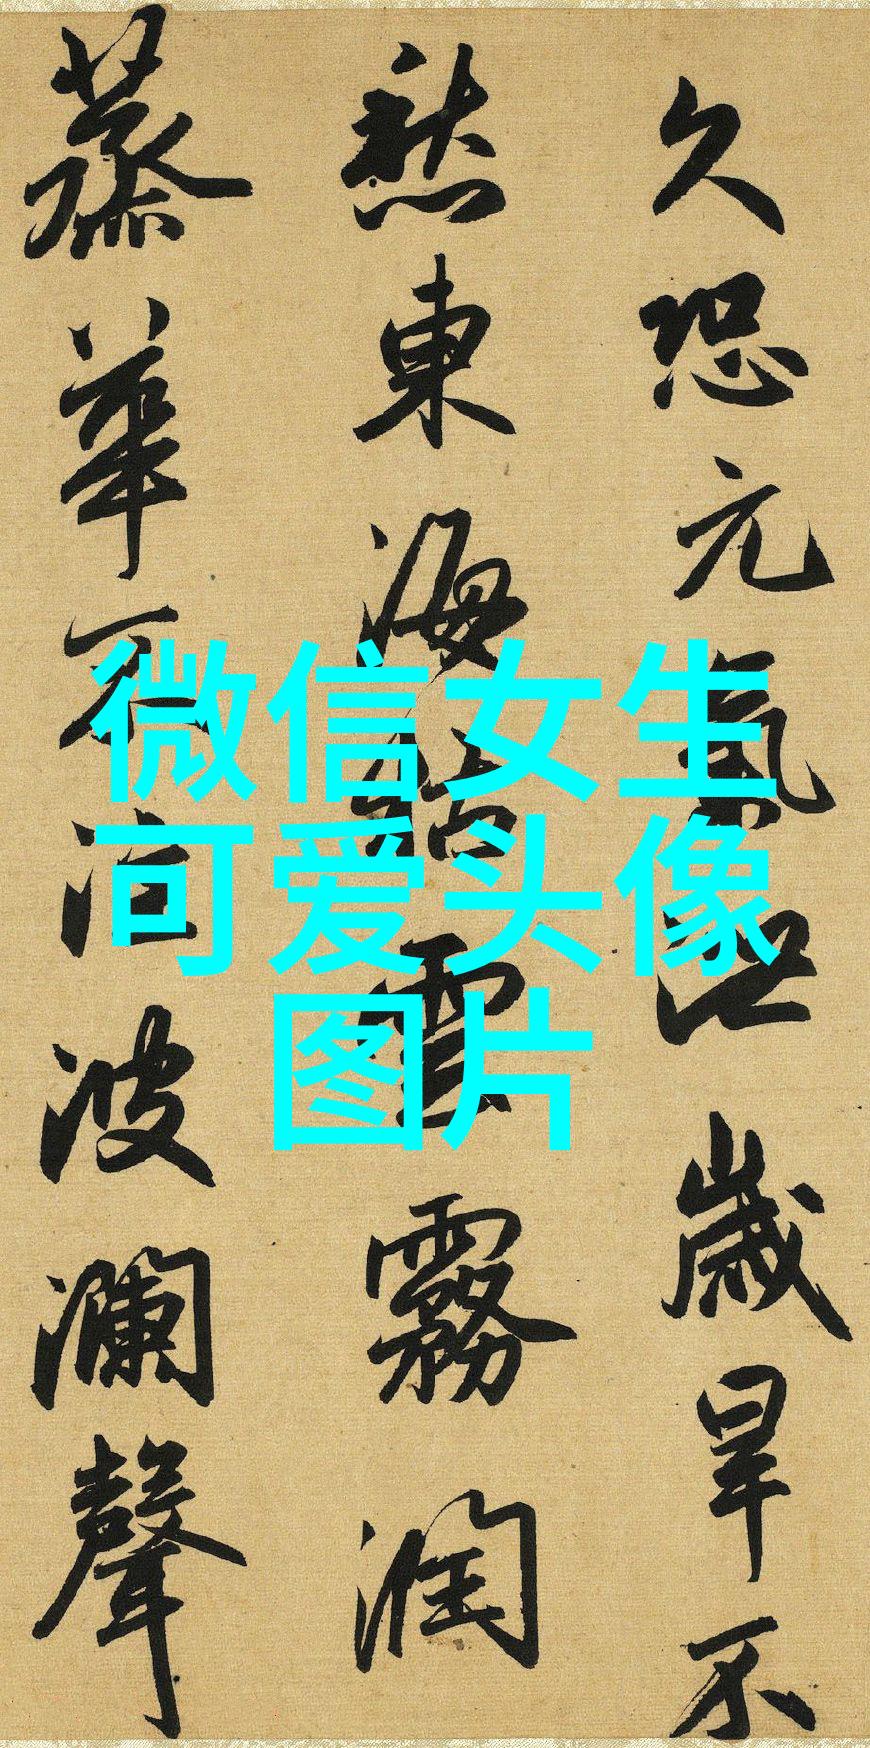 久恐元氣泄歲旱不
愁東海枯雲霧潤
蒸華不注波瀾聲
微信女生
可爱头像
图片